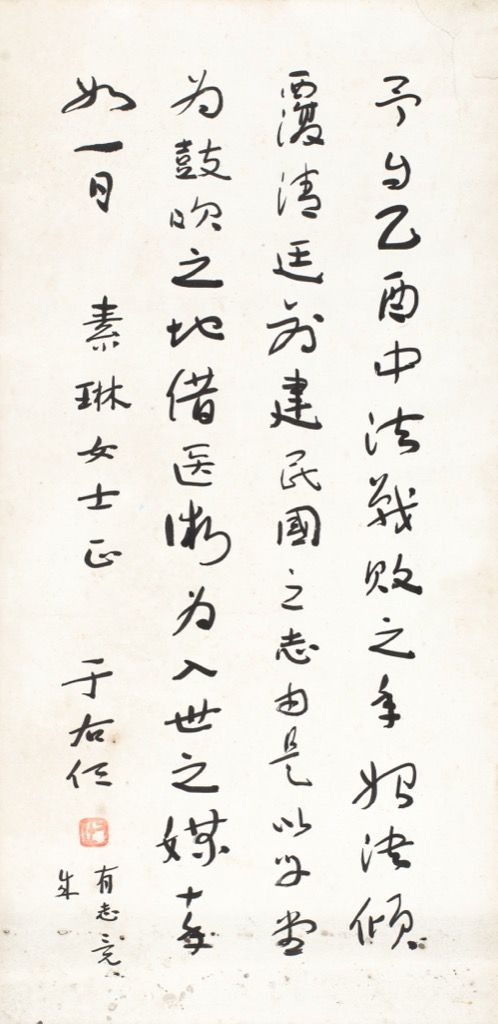 予自乙酉中法戰敗之年始決傾
覆清廷創建民國之志由是以學堂
為鼓吹之地借医術為入世之媒十年
如一日 素琳女士正 于右任
有志竟
成